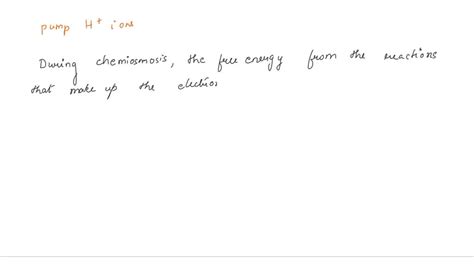 pump H+ ions
During chemiosmosis, the free energy from the reactions
that make up the electron